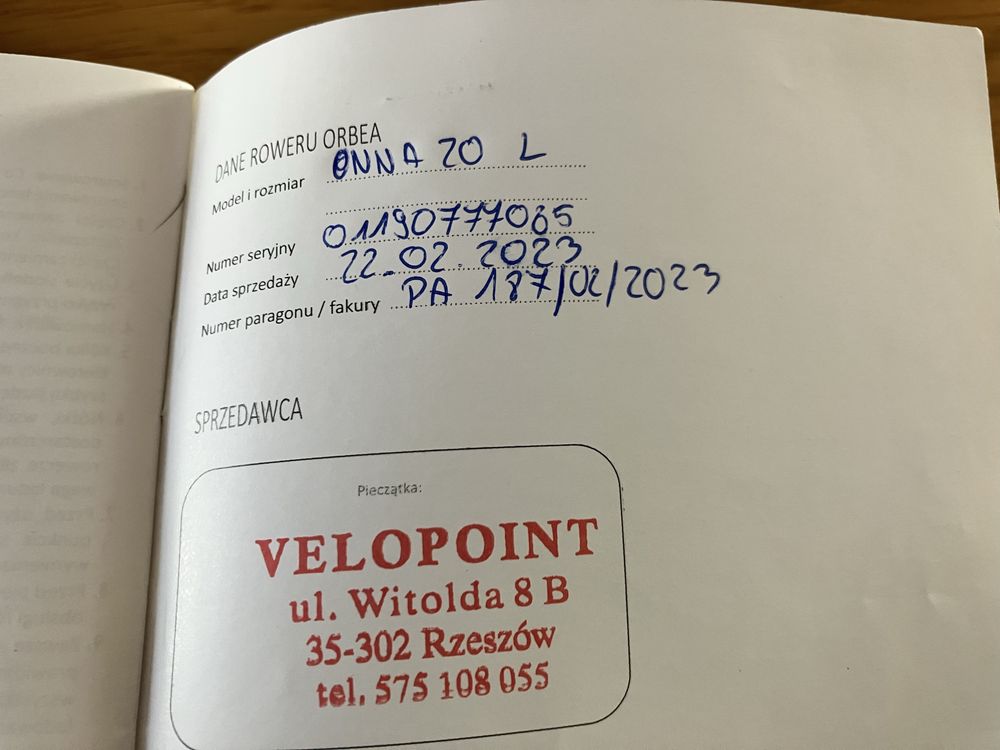 DANE ROWERU ORBEA
Model i rozmiar ONNA 20 L
Numer seryjny 01190777085
Data sprzedaży 22.02.2023
Numer paragonu / fakury PA 187/02/2023
SPRZEDAWCA
Pieczątka:
VELOPOINT
ul. Witolda 8 B
35-302 Rzeszów
tel. 575 108 055